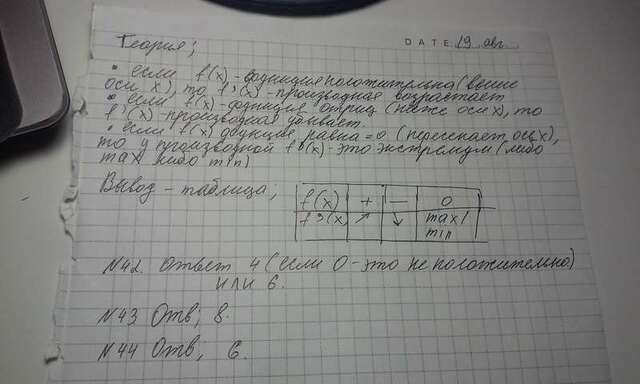 Теория;
DATE 19 авг.
• если f(x) - функция положительна (выше
оси x), то f'(x) - производная возрастает
• если f(x) - функция отриц (ниже оси x), то
f'(x) - производная убывает.
• если f(x) функция, равна = 0 (пересекает ось x),
то у производной f'(x) - это экстремум (либо
max либо min)
Вывод - таблица;
f(x) + — 0
f'(x) ↗ ↘ max/
min
N42. Ответ 4 (если 0 - это не положительно)
или 6.
N43 Отв; 8.
N44 Отв, 6.